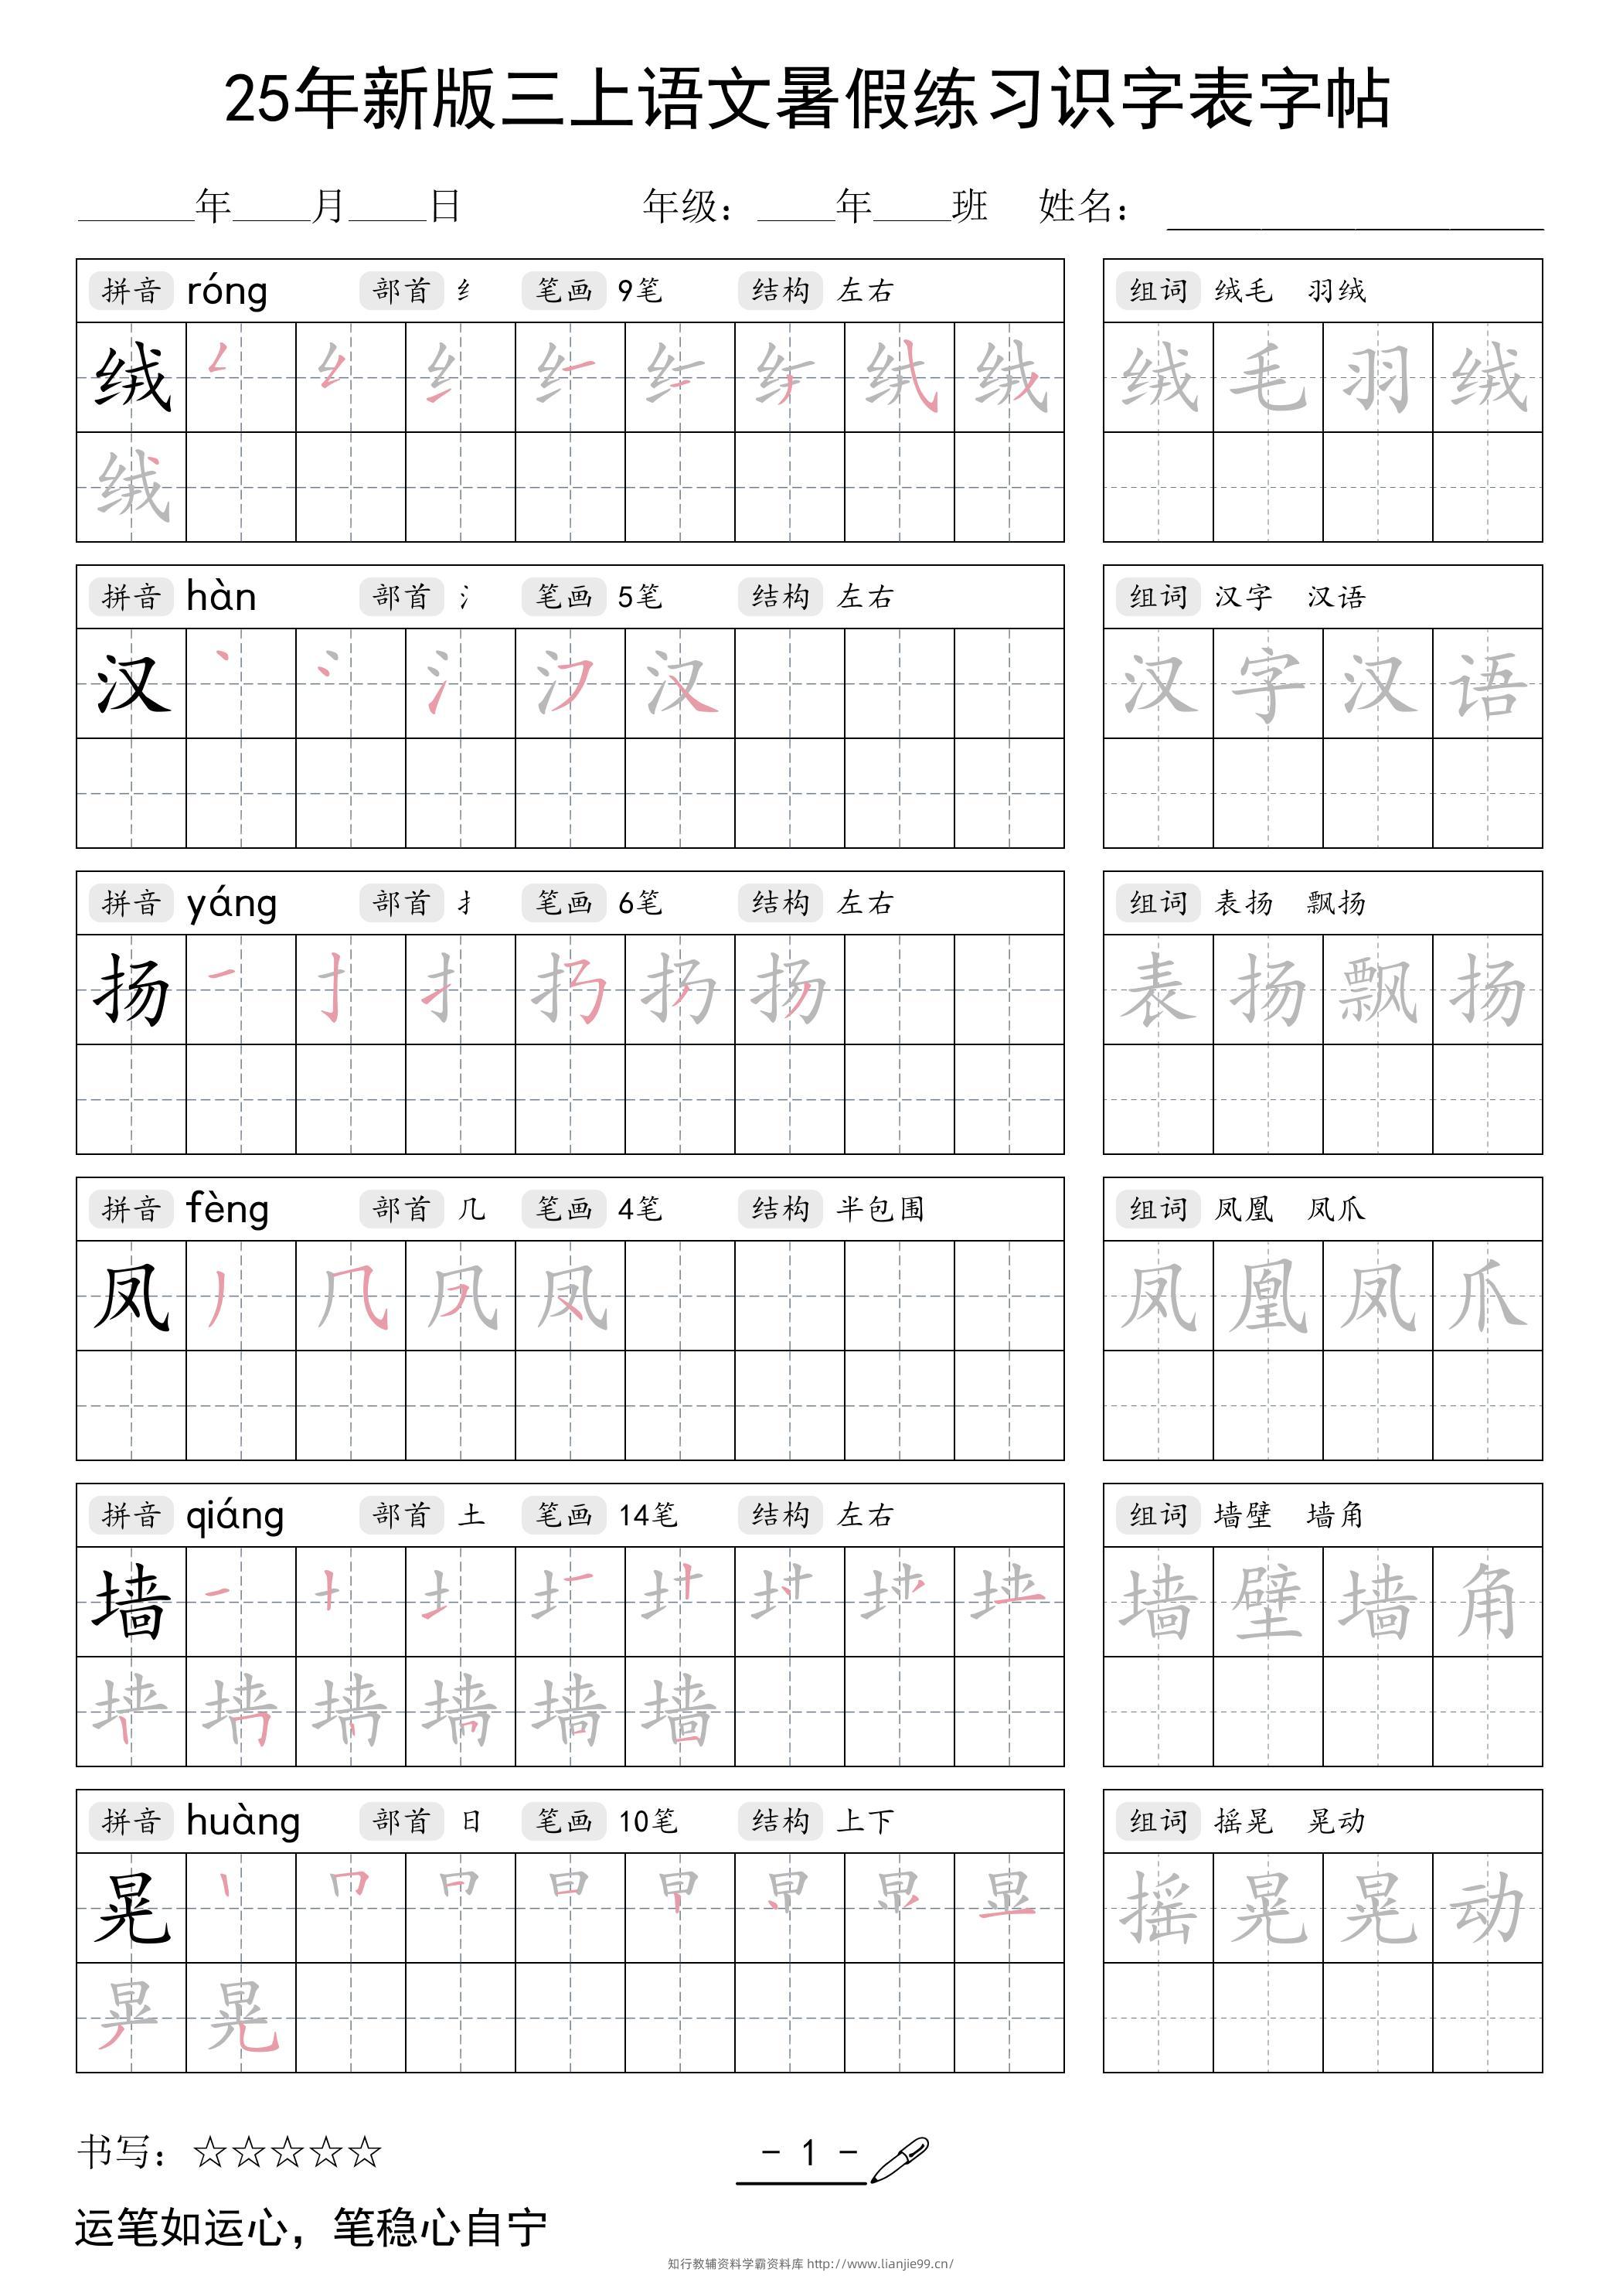 25年新版三上语文暑假练习识字表字帖
______年____月____日 年级：____年____班 姓名：
拼音 róng 部首 纟 笔画 9笔 结构 左右 组词 绒毛 羽绒
绒 绒 毛 羽 绒
绒
拼音 hàn 部首 氵 笔画 5笔 结构 左右 组词 汉字 汉语
汉 汉 字 汉 语
拼音 yáng 部首 扌 笔画 6笔 结构 左右 组词 表扬 飘扬
扬 表 扬 飘 扬
拼音 fèng 部首 几 笔画 4笔 结构 半包围 组词 凤凰 凤爪
凤 凤 凰 凤 爪
拼音 qiáng 部首 土 笔画 14笔 结构 左右 组词 墙壁 墙角
墙 墙 壁 墙 角
墙
拼音 huàng 部首 日 笔画 10笔 结构 上下 组词 摇晃 晃动
晃 摇 晃 晃 动
晃
书写：☆☆☆☆☆
- 1 -
运笔如运心，笔稳心自宁
知行教辅资料学霸资料库 http://www.lianjie99.cn/